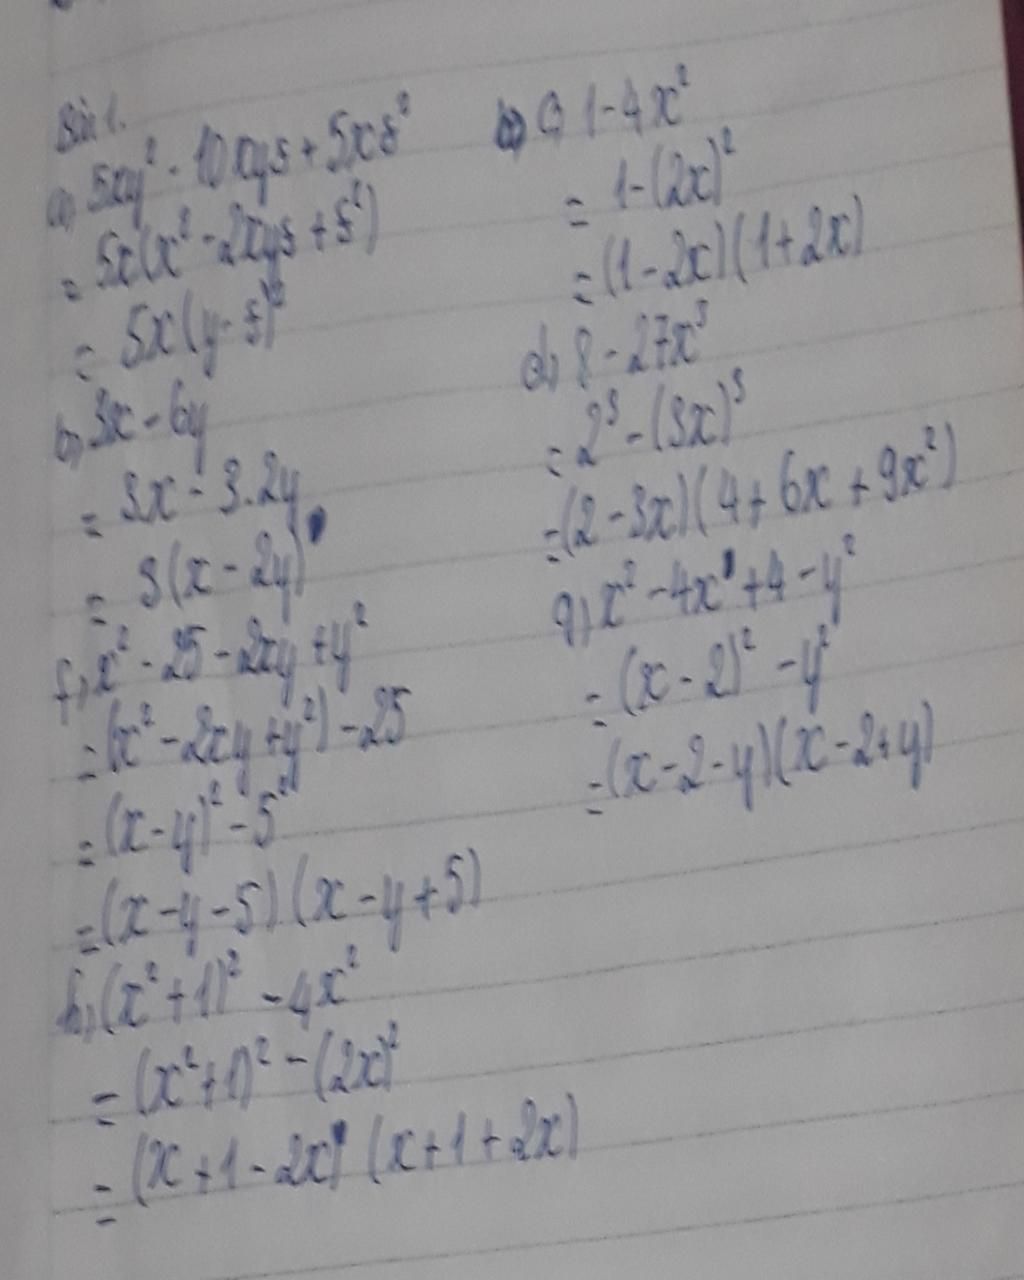 Bài 1.
a) 5xy² - 10xyz + 5xz²
= 5x(x² - 2xyz + z²)
= 5x(y - z)²
b) 3x - 6y
= 3x - 3.2y
= 3(x - 2y)
f) x² - 25 - 2xy + y²
= (x² - 2xy + y²) - 25
= (x - y)² - 5²
= (x - y - 5)(x - y + 5)
h) (x² + 1)² - 4x²
= (x² + 1)² - (2x)²
= (x + 1 - 2x) (x + 1 + 2x)
c) 1 - 4x²
= 1 - (2x)²
= (1 - 2x)(1 + 2x)
d) 8 - 27x³
= 2³ - (3x)³
= (2 - 3x)(4 + 6x + 9x²)
g) x² - 4x + 4 - y²
= (x - 2)² - y²
= (x - 2 - y)(x - 2 + y)